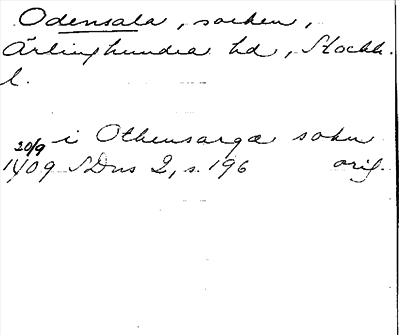 Odensala, socken,
Ärlinghundra hd, Stockh.
l.
i Othensarga sokn
20/9
1409 SDns 2, s. 196 orig.